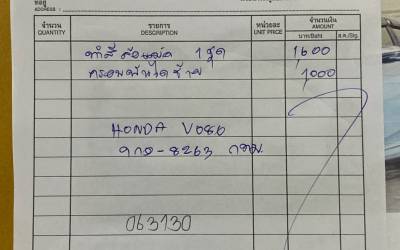 ที่อยู่
ADDRESS :
จำนวน รายการ หน่วยละ จำนวนเงิน
QUANTITY DESCRIPTION UNIT PRICE AMOUNT
บาท/Baht ส.ต./Stg.
ทำสี 1 ชุด 1600
ครอบบันไดซ้าย 1000
HONDA
8263 กทม.
063130